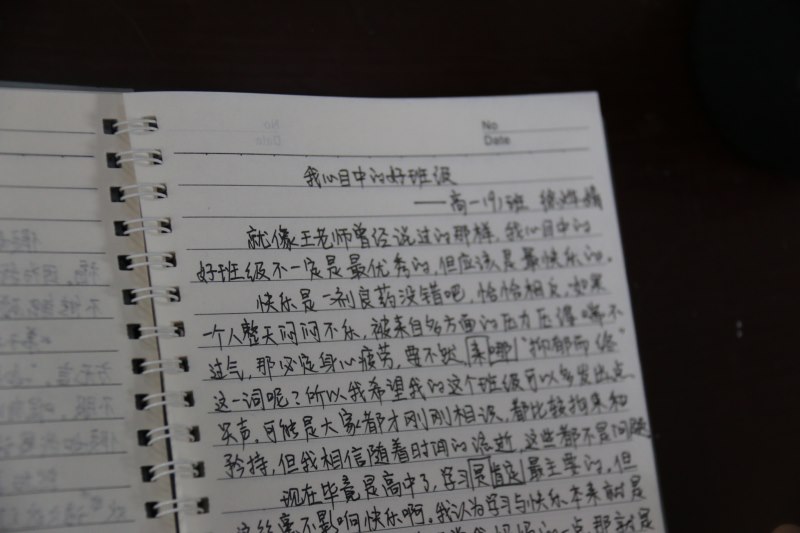 No
Date
我心目中的好班级
——高一(9)班 徐
就像王老师曾经说过的那样,我心目中的
好班级不一定是最优秀的,但应该是最快乐的。
快乐是一剂良药没错吧,恰恰相反,如果
一个人整天闷闷不乐,被来自多方面的压力压得喘不
过气,那必定身心疲劳,要不然,来哪"抑郁而终"
这一词呢?所以我希望我的这个班级可以多发出点
笑声,可能是大家都才刚刚相识,都比较拘束和
矜持,但我相信随着时间的流逝,这些都不是问题
现在毕竟是高中了,学习是肯定最主要的,但
这丝毫不影响快乐啊。我认为学习与快乐本来就是
一点,那就是